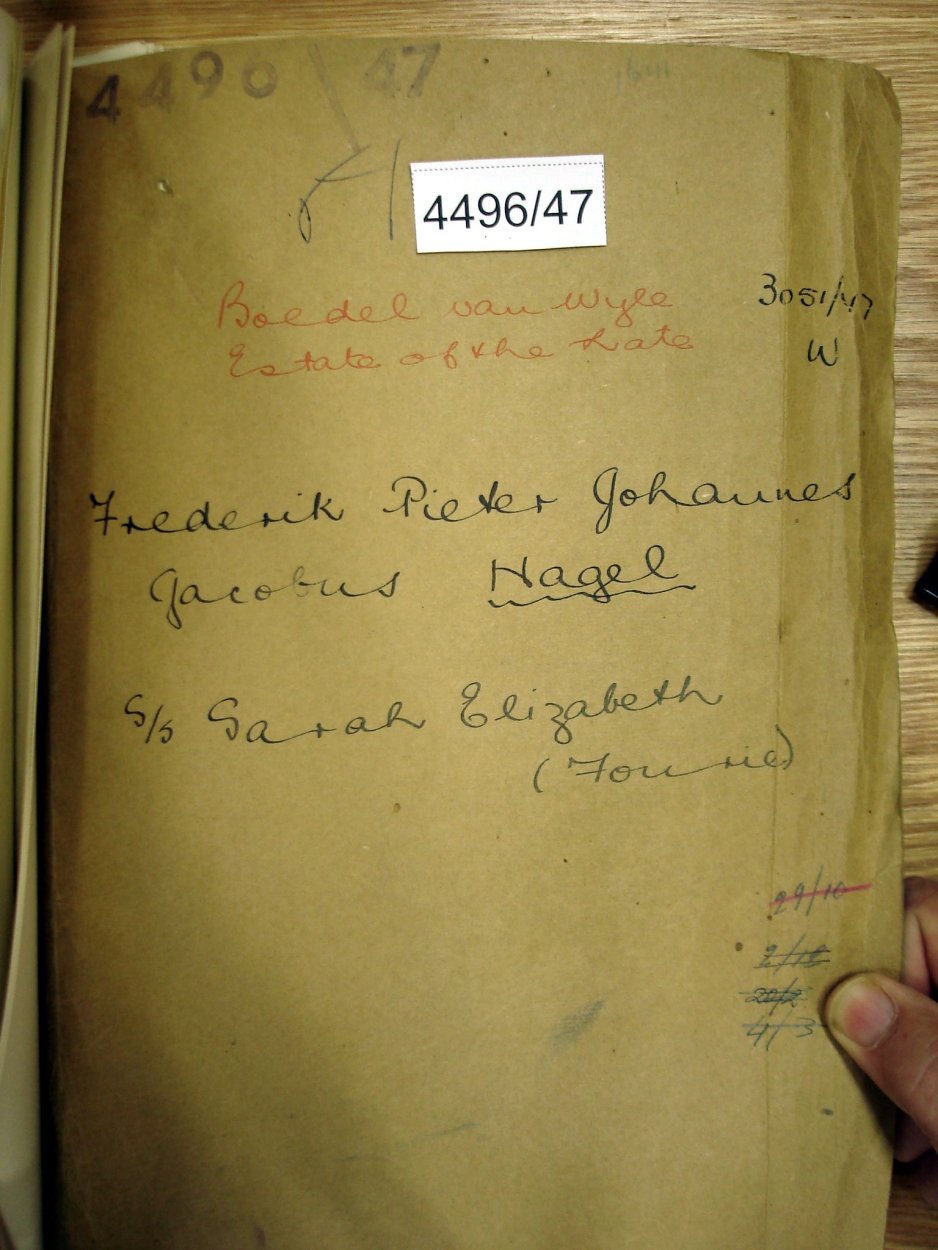 4496 47
4496/47
Boedel van Wyle
Estate of the Late
3051/47
W
Frederik Pieter Johannes
Jacobus Nagel
S/s Sarah Elizabeth
(Fourie)
29/10
2/12
20/2
4/3